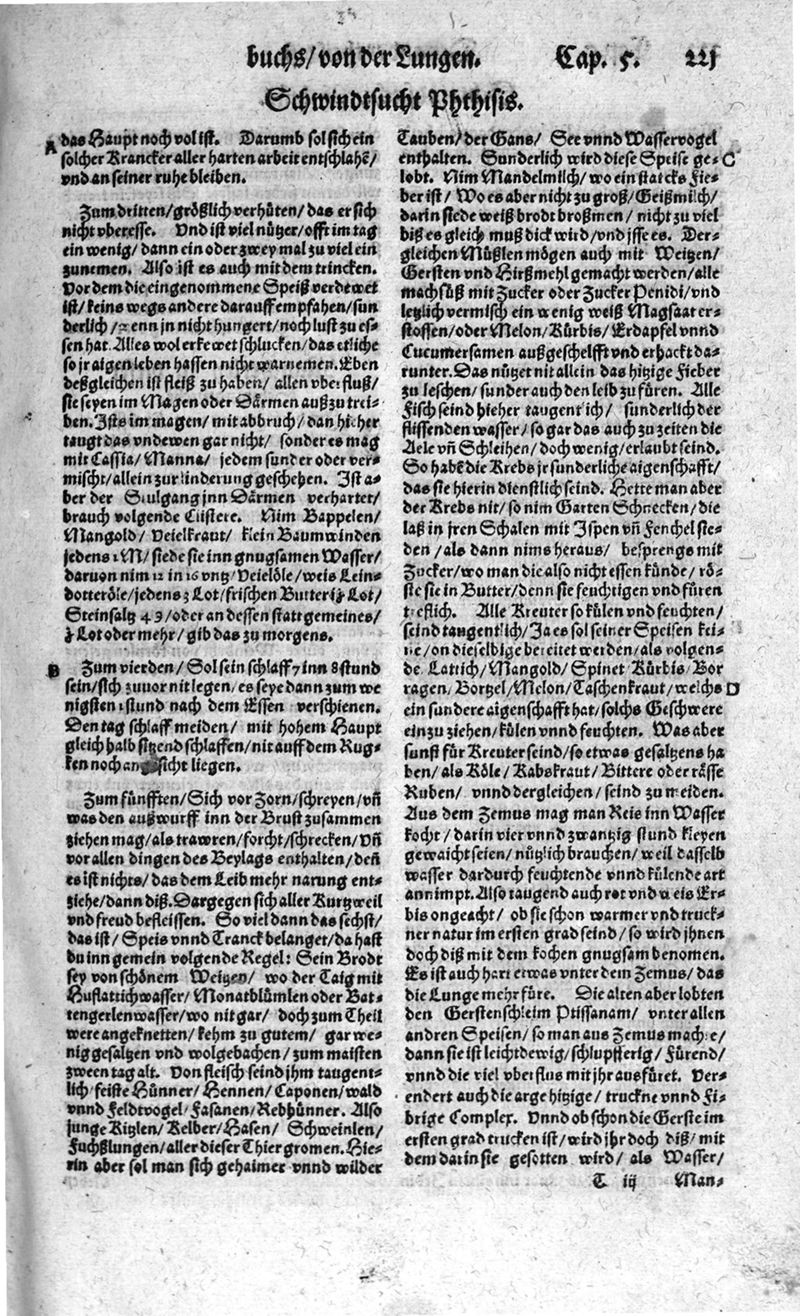 buchs/von der Lungen. Cap. 5. 221
Schwindtsucht Phthisis.
A das Haupt noch vol ist. Darumb sol sich ein
solcher Krancker aller harten arbeit entschlahẽ/
vnd an seiner ruhe bleiben.
Zum dritten/größlich verhüten/das er sich
nicht vberesse. Vnd ist viel nützer/offt im tag
ein wenig/dann ein oder zwey mal zu viel ein
zunemen. Also ist es auch mit dem trincken.
Vor dem die eingenommene Speiß verdewet
ist/keins wegs andere darauff empfahen/sun
derlich/wenn jn nicht hungert/noch lust zu es-
sen hat. Alles wol erkewet schlucken/das etliche
so jr aigen leben hassen nicht warnemen. Eben
deßgleichen ist fleiß zu haben/allen vberfluß/
sie seyen im Magen oder Därmen auß zu trei-
ben. Ists im magen/mit abbruch/dan hieher
taugt das vndewen gar nicht/sonder es mag
mit Cassia/Manna/jedem sunder oder ver-
mischt/allein zur linderung geschehen. Ist a-
ber der Stulgang jnn Därmen verhartet/
brauch volgende Clistere. Nim Bappelen/
Mangold/Veielkraut/klein Baumwinden
jedens 1 M/siede sie inn gnugsamen Wasser/
daruon nim 12 in 16 vntz/Veielöle/weis Lein-
dotteröle/jedens 3 Lot/frischen Butter
Lot/
Steinsaltz
/oder an dessen statt gemeines/
Lot oder mehr/gib das zu morgens.
B Zum vierden/Sol sein schlaff 7 inn 8 stund
sein/sich zuuor nit legen/es seye dann zum we
nigsten 1 stund nach dem Essen verschienen.
Den tag schlaff meiden/mit hohem Haupt
gleich halb sitzend schlaffen/nit auff dem Rug-
ken noch
liegen.
Zum fünfften/Sich vor Zorn/schreyen/vñ
was den außwurff inn der Brust zusammen
ziehen mag/als trawren/forcht/schrecken/Vñ
vor allen dingen des Beylags enthalten/deñ
es ist nichts/das dem Leib mehr narung ent-
ziehe/dann diß. Dargegen sich aller Kurtzweil
vnd freud befleissen. So viel dann das sechst/
das ist/Speis vnnd Tranck belanget/da hast
du inn gemein volgende Regel: Sein Brodt
sey von schönem Weitzen/wo der Taig mit
Huflattichwasser/Monatblümlen oder Bat-
tengerlenwasser/wo nit gar/doch zum Theil
were angeknetten/kehm zu gutem/gar we-
nig gesaltzen vnd wolgebachen/zum maisten
zween tag alt. Von fleisch seind jhm taugent-
lich feiste Hünner/Hennen/Caponen/wald
vnnd Feldtvogel/Fasanen/Rebhünner. Also
junge Kitzlen/Kelber/Hasen/Schweinlen/
Fuchßlungen/aller dieser Thier gromen. Hie-
rin aber sol man sich gehaimer vnnd wilder
Tauben/der Gans/See vnnd Wasservögel
enthalten. Sunderlich wird diese Speise ge- C
lobt. Nim Mandelmilch/wo ein starcks Fie-
ber ist/Wo es aber nicht zu groß/Geißmilch/
darin siede weiß brodt broßmen/nicht zu viel
biß es gleich muß dick wird/vnd isse es. Der-
gleichen Müßlen mögen auch mit Weitzen/
Gersten vnd Hirßmehl gemacht werden/alle
mach süß mit Zucker oder Zucker Penidi/vnd
letzlich vermisch ein wenig weiß Magsaat er-
stossen/oder Melon/Kürbis/Erdapfel vnnd
Cucumersamen außgeschelfft vnd erhackt da-
runter. Das nützet nit allein das hitzige Fieber
zu leschen/sunder auch den leib zu füren. Alle
Fisch seind hieher taugentlich/sunderlich der
flissenden wasser/so gar das auch zu zeiten die
Aele vñ Schleihen/doch wenig/erlaubt seind.
So habẽ die Krebs je sunderliche aigenschafft/
das sie hierin dienstlich seind. Hette man aber
der Krebs nit/so nim Garten Schnecken/die
laß in jren Schalen mit Ispen vñ Fenchel sie-
den/als dann nims heraus/besprengs mit
Zucker/wo man die also nicht essen künde/rö-
ste sie in Butter/denn sie feuchtigen vnd füren
treflich. Alle Kreuter so külen vnd feuchten/
seind taugentlich/Ja es sol seiner Speisen kei-
ne/on dieselbige bereitet werden/als volgen-
de. Lattich/Mangold/Spinet Kürbis/Bor
ragen/Bortzel/Melon/Taschenkraut/welchs D
ein sundere aigenschafft hat/solchs Geschwere
ein zu ziehen/külen vnnd feuchten. Was aber
sunst für Kreuter seind/so etwas gesaltzens ha
ben/als Köle/Kabskraut/Bittere oder rässe
Ruben/vnnd dergleichen/seind zu meiden.
Aus dem Zemus mag man Reis inn Wasser
kocht/darin vier vnnd zwantzig stund kleyen
gewaicht seien/nützlich brauchen/weil dasselb
wasser dardurch feuchtende vnnd külende art
annimpt. Also taugend auch rot vnd weis Er-
bis ongeacht/ob sie schon warmer vnd truck-
ner natur im ersten grad seind/so wird jhnen
doch diß mit dem kochen gnugsam benomen.
Es ist auch hart etwas vnter dem Zemus/das
die Lunge mehr füre. Die alten aber lobten
den Gerstenschleim Ptissanam/vnter allen
andren Speisen/so man aus Zemus mache/
dann sie ist leichtdewig/schlupfferig/Fürend/
vnnd die viel vberflus mit jhr ausfüret. Ver-
endert auch die arge hitzige/truckne vnnd Fi-
brige Complex. Vnnd ob schon die Gerste im
ersten grad trucken ist/wird jhr doch diß/mit
dem darin sie gesotten wird/als Wasser/
T iij Man-